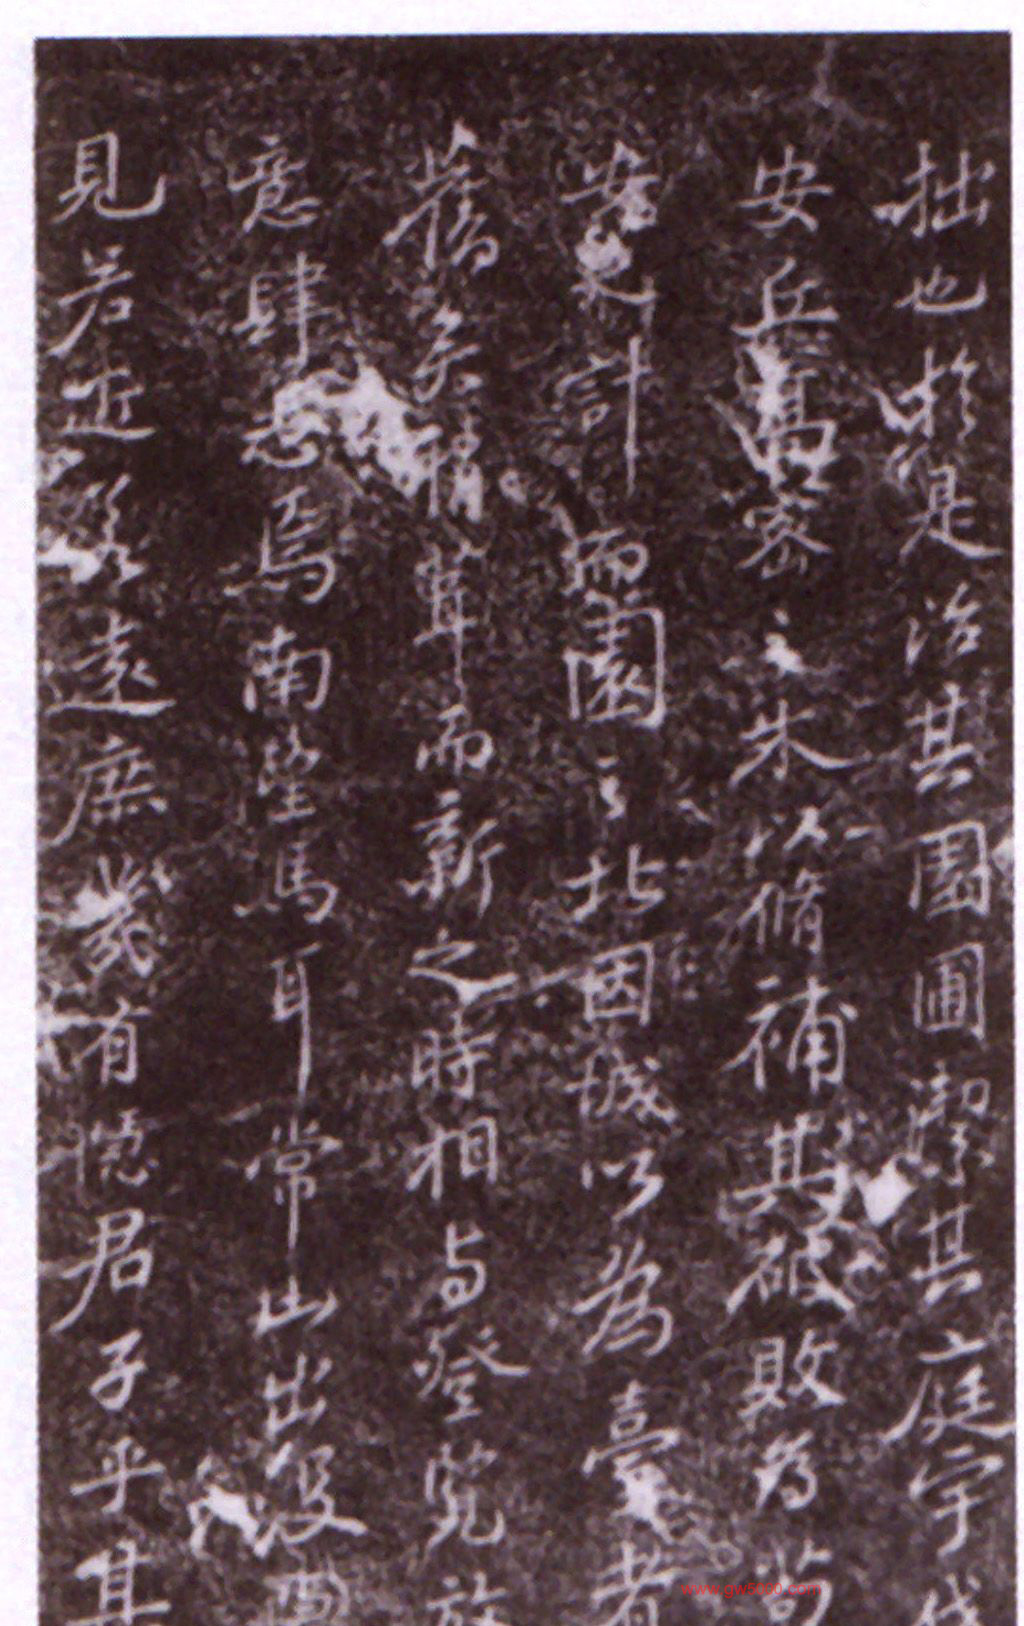 拙也於是治其園圃潔其庭宇伐
安丘高密之木以脩補其破敗為苟
計而園之北因城以為臺者
舊矣稍葺而新之時相与登覽放
意肆志焉南望馬耳常山出没隱
見若近若遠庶幾有隱君子乎其
www.gw5000.com